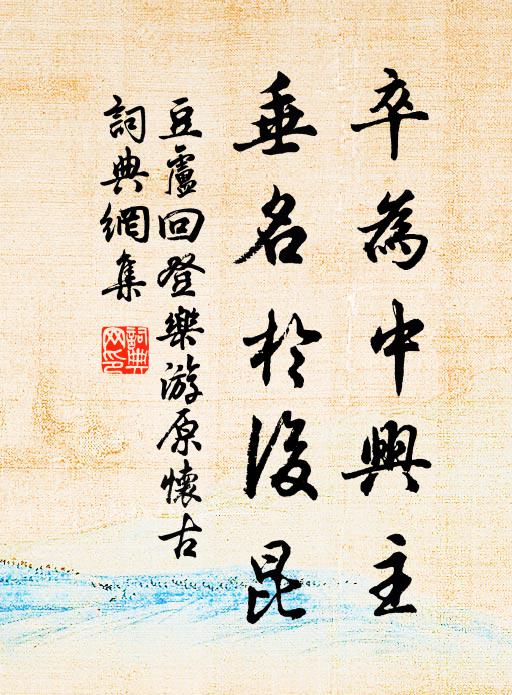 卒為中興主
垂名於後昆
豆盧回登樂游原懷古
詞典網集
詞典
网印